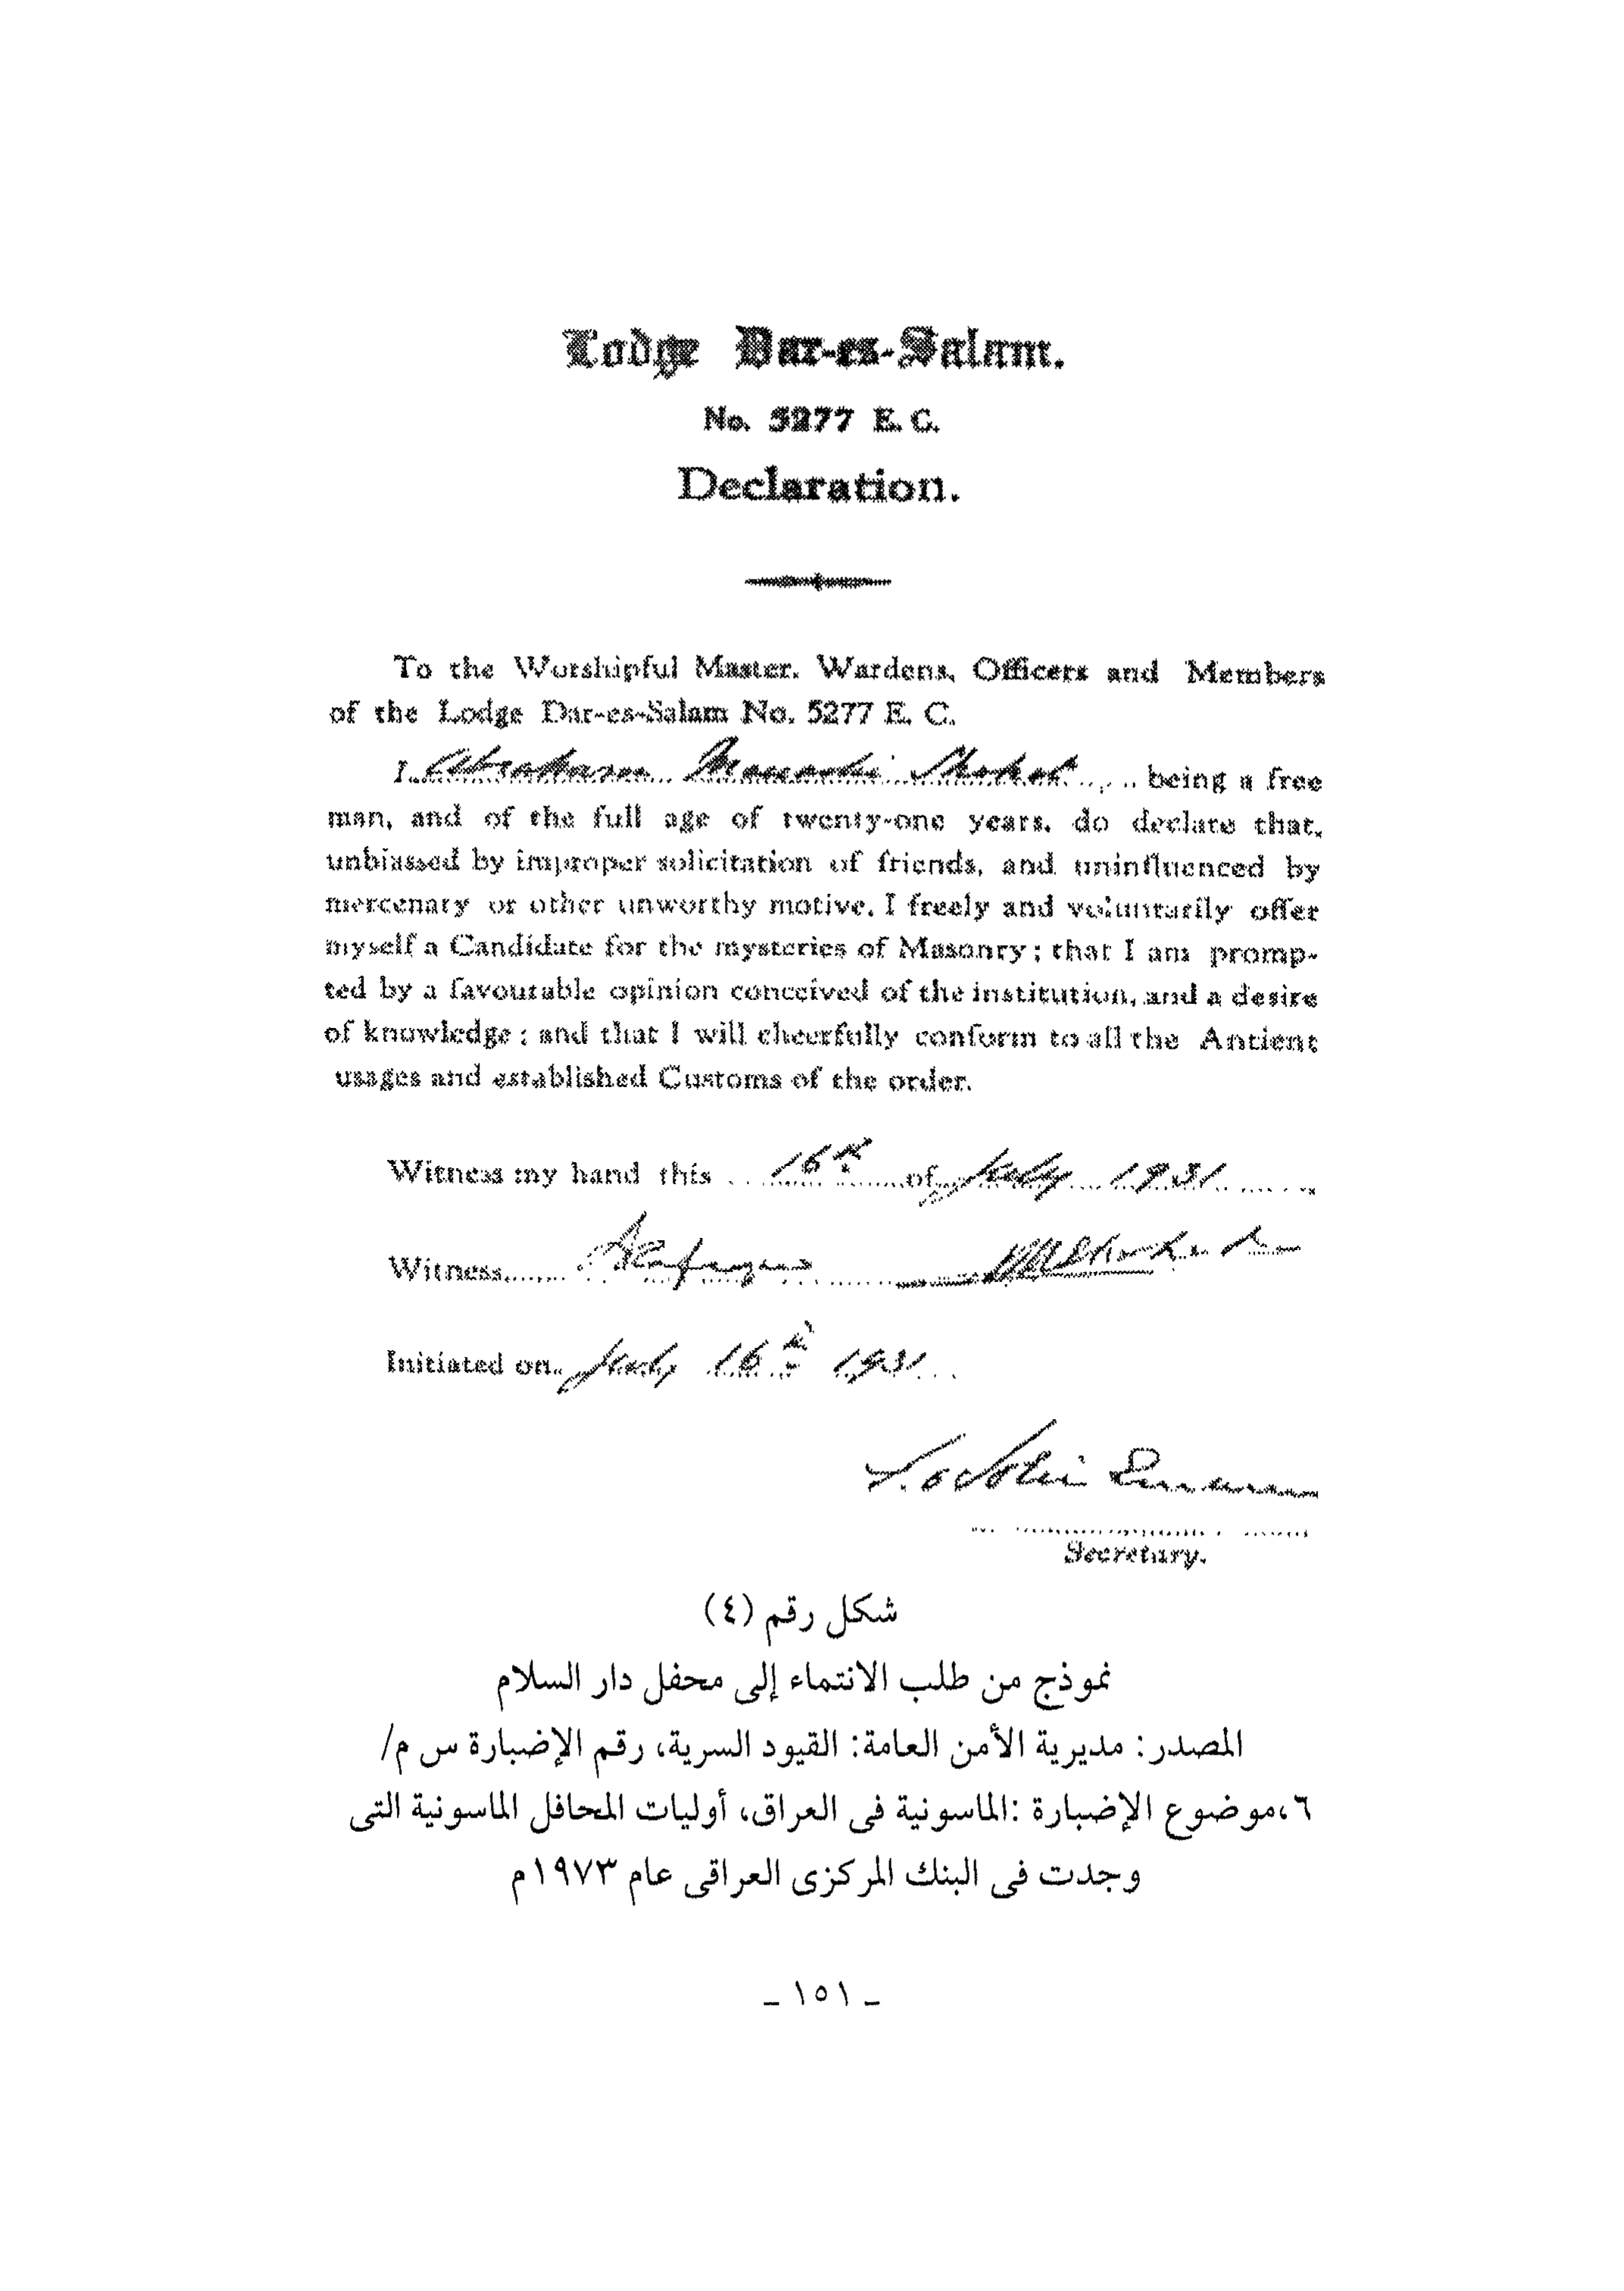 Lodge Dar-es-Salam.
No. 5277 E. C.
Declaration.
To the Worshipful Master, Wardens, Officers and Members
of the Lodge Dar-es-Salam No. 5277 E. C.
I being a free
man, and of the full age of twenty-one years, do declare that,
unbiassed by improper solicitation of friends, and uninfluenced by
mercenary or other unworthy motive, I freely and voluntarily offer
myself a Candidate for the mysteries of Masonry; that I am promp-
ted by a favourable opinion conceived of the institution, and a desire
of knowledge; and that I will cheerfully conform to all the Antient
usages and established Customs of the order.
Witness my hand this 16th of July 1931
Witness
Initiated on July 16th 1931
Secretary.
شكل رقم (٤)
نموذج من طلب الانتماء إلى محفل دار السلام
المصدر: مديرية الأمن العامة: القيود السرية، رقم الإضبارة س م/
٦،موضوع الإضبارة :الماسونية فى العراق، أوليات المحافل الماسونية التى
وجدت فى البنك المركزى العراقى عام ١٩٧٣م
ـ ١٥١ ـ